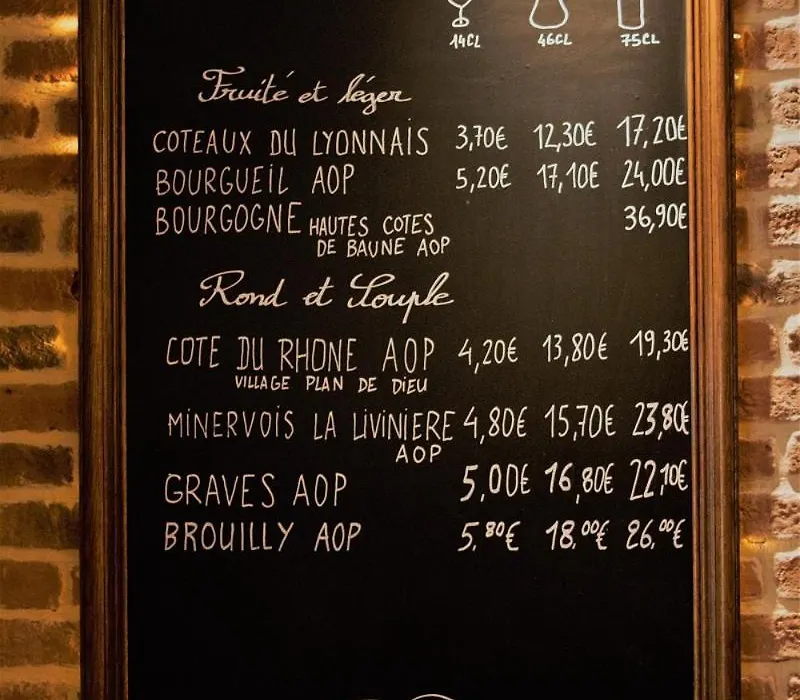 14CL 46CL 75CL
Fruité et léger
COTEAUX DU LYONNAIS 3,70€ 12,30€ 17,20€
BOURGUEIL AOP 5,20€ 17,10€ 24,00€
BOURGOGNE HAUTES COTES 36,90€
DE BAUNE AOP
Rond et Souple
COTE DU RHONE AOP 4,20€ 13,80€ 19,30€
VILLAGE PLAN DE DIEU
MINERVOIS LA LIVINIERE 4,80€ 15,70€ 23,80€
AOP
GRAVES AOP 5,00€ 16,80€ 22,10€
BROUILLY AOP 5.80€ 18.00€ 26.00€